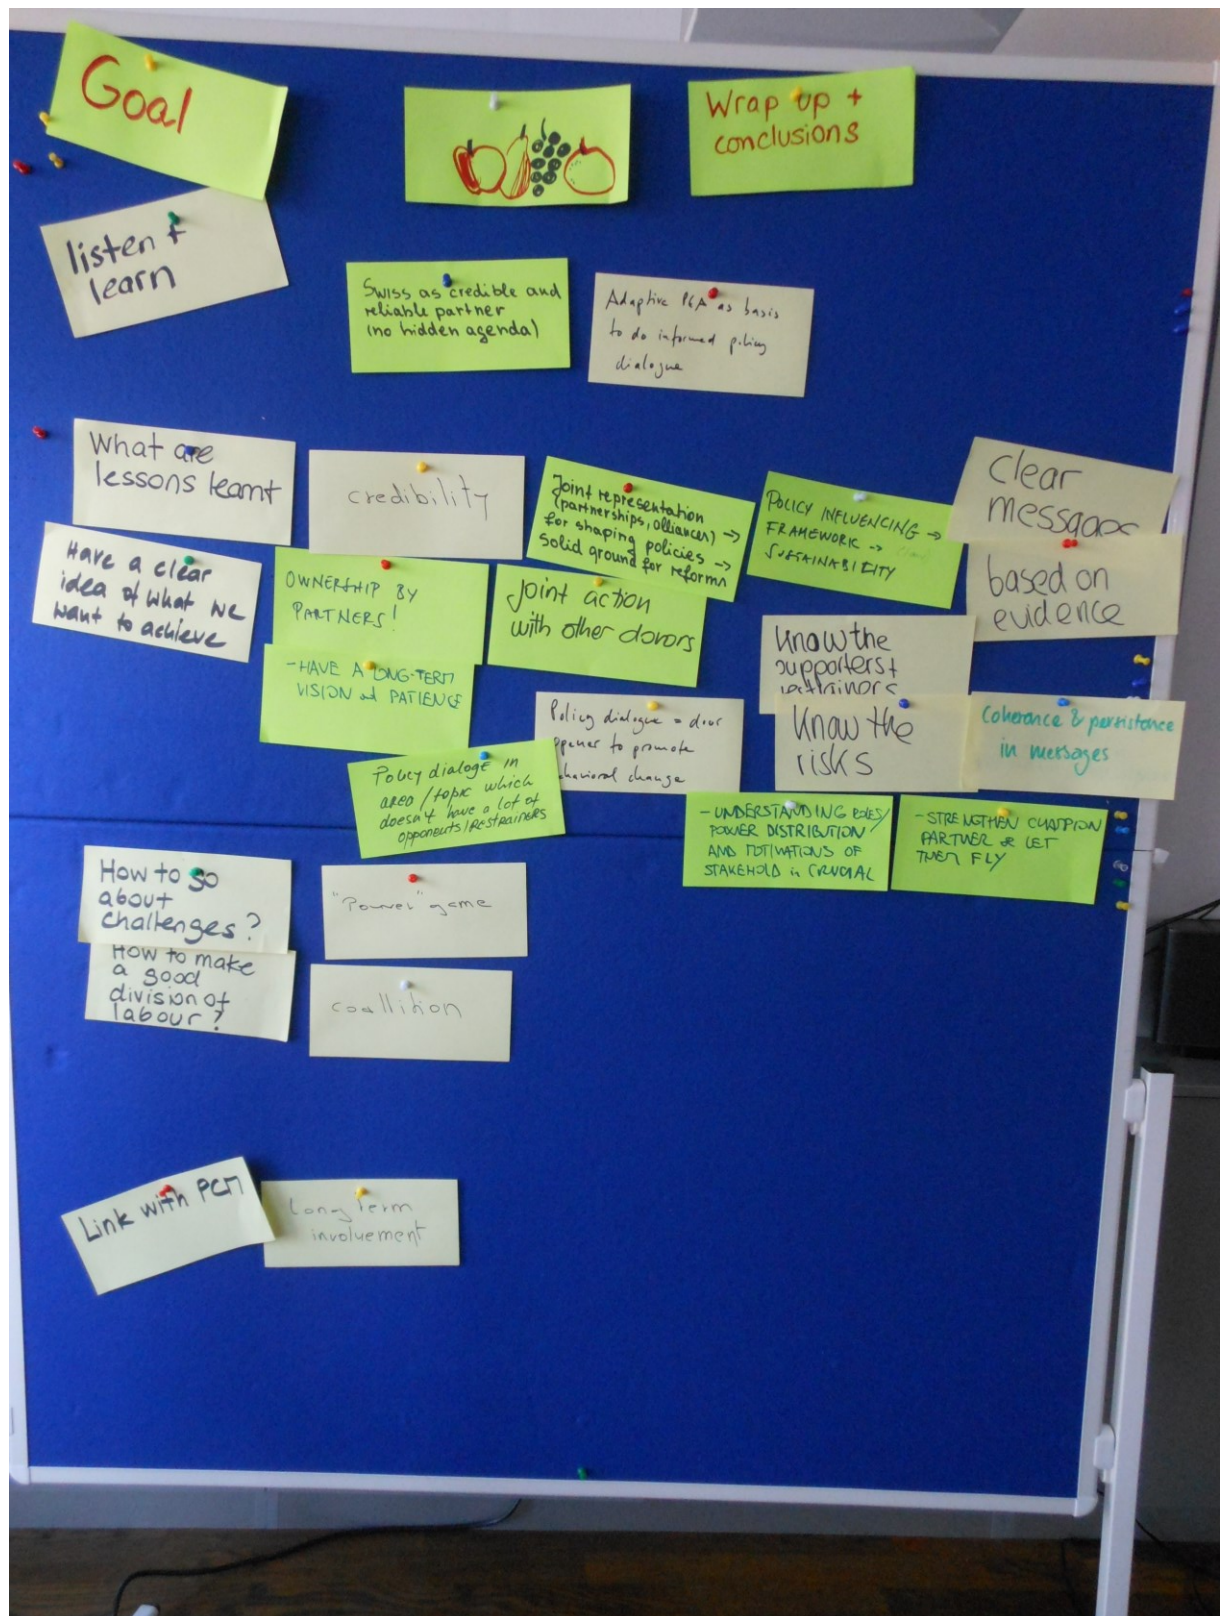 Goal
Wrap up +
conclusions
listen +
learn
Swiss as credible and
reliable partner
(no hidden agenda)
Adaptive PEA as basis
to do informed policy
dialogue
What are
lessons learnt
credibility
Joint representation
(partnerships, alliances) →
for shaping policies →
solid ground for reforms
POLICY INFLUENCING →
FRAMEWORK →
SUSTAINABILITY
Clear
messages
based on
evidence
Have a clear
idea of what we
want to achieve
OWNERSHIP BY
PARTNERS!
Joint action
with other donors
Know the
supporters +
- HAVE A LONG-TERM
VISION and PATIENCE
Policy dialogue = door
opener to promote
behavioral change
Know the
risks
Coherance & persistence
in messages
Policy dialoge in
area / topic which
doesn't have a lot of
opponents/RESTRAINERS
- UNDERSTANDING ROLES/
POWER DISTRIBUTION
AND MOTIVATIONS OF
STAKEHOLD is CRUCIAL
- STRENGTHEN CHAMPION
PARTNER & LET
THEM FLY
How to go
about
challenges?
"Power" game
How to make
a good
division of
labour?
coallition
Link with PCM
Long Term
involvement